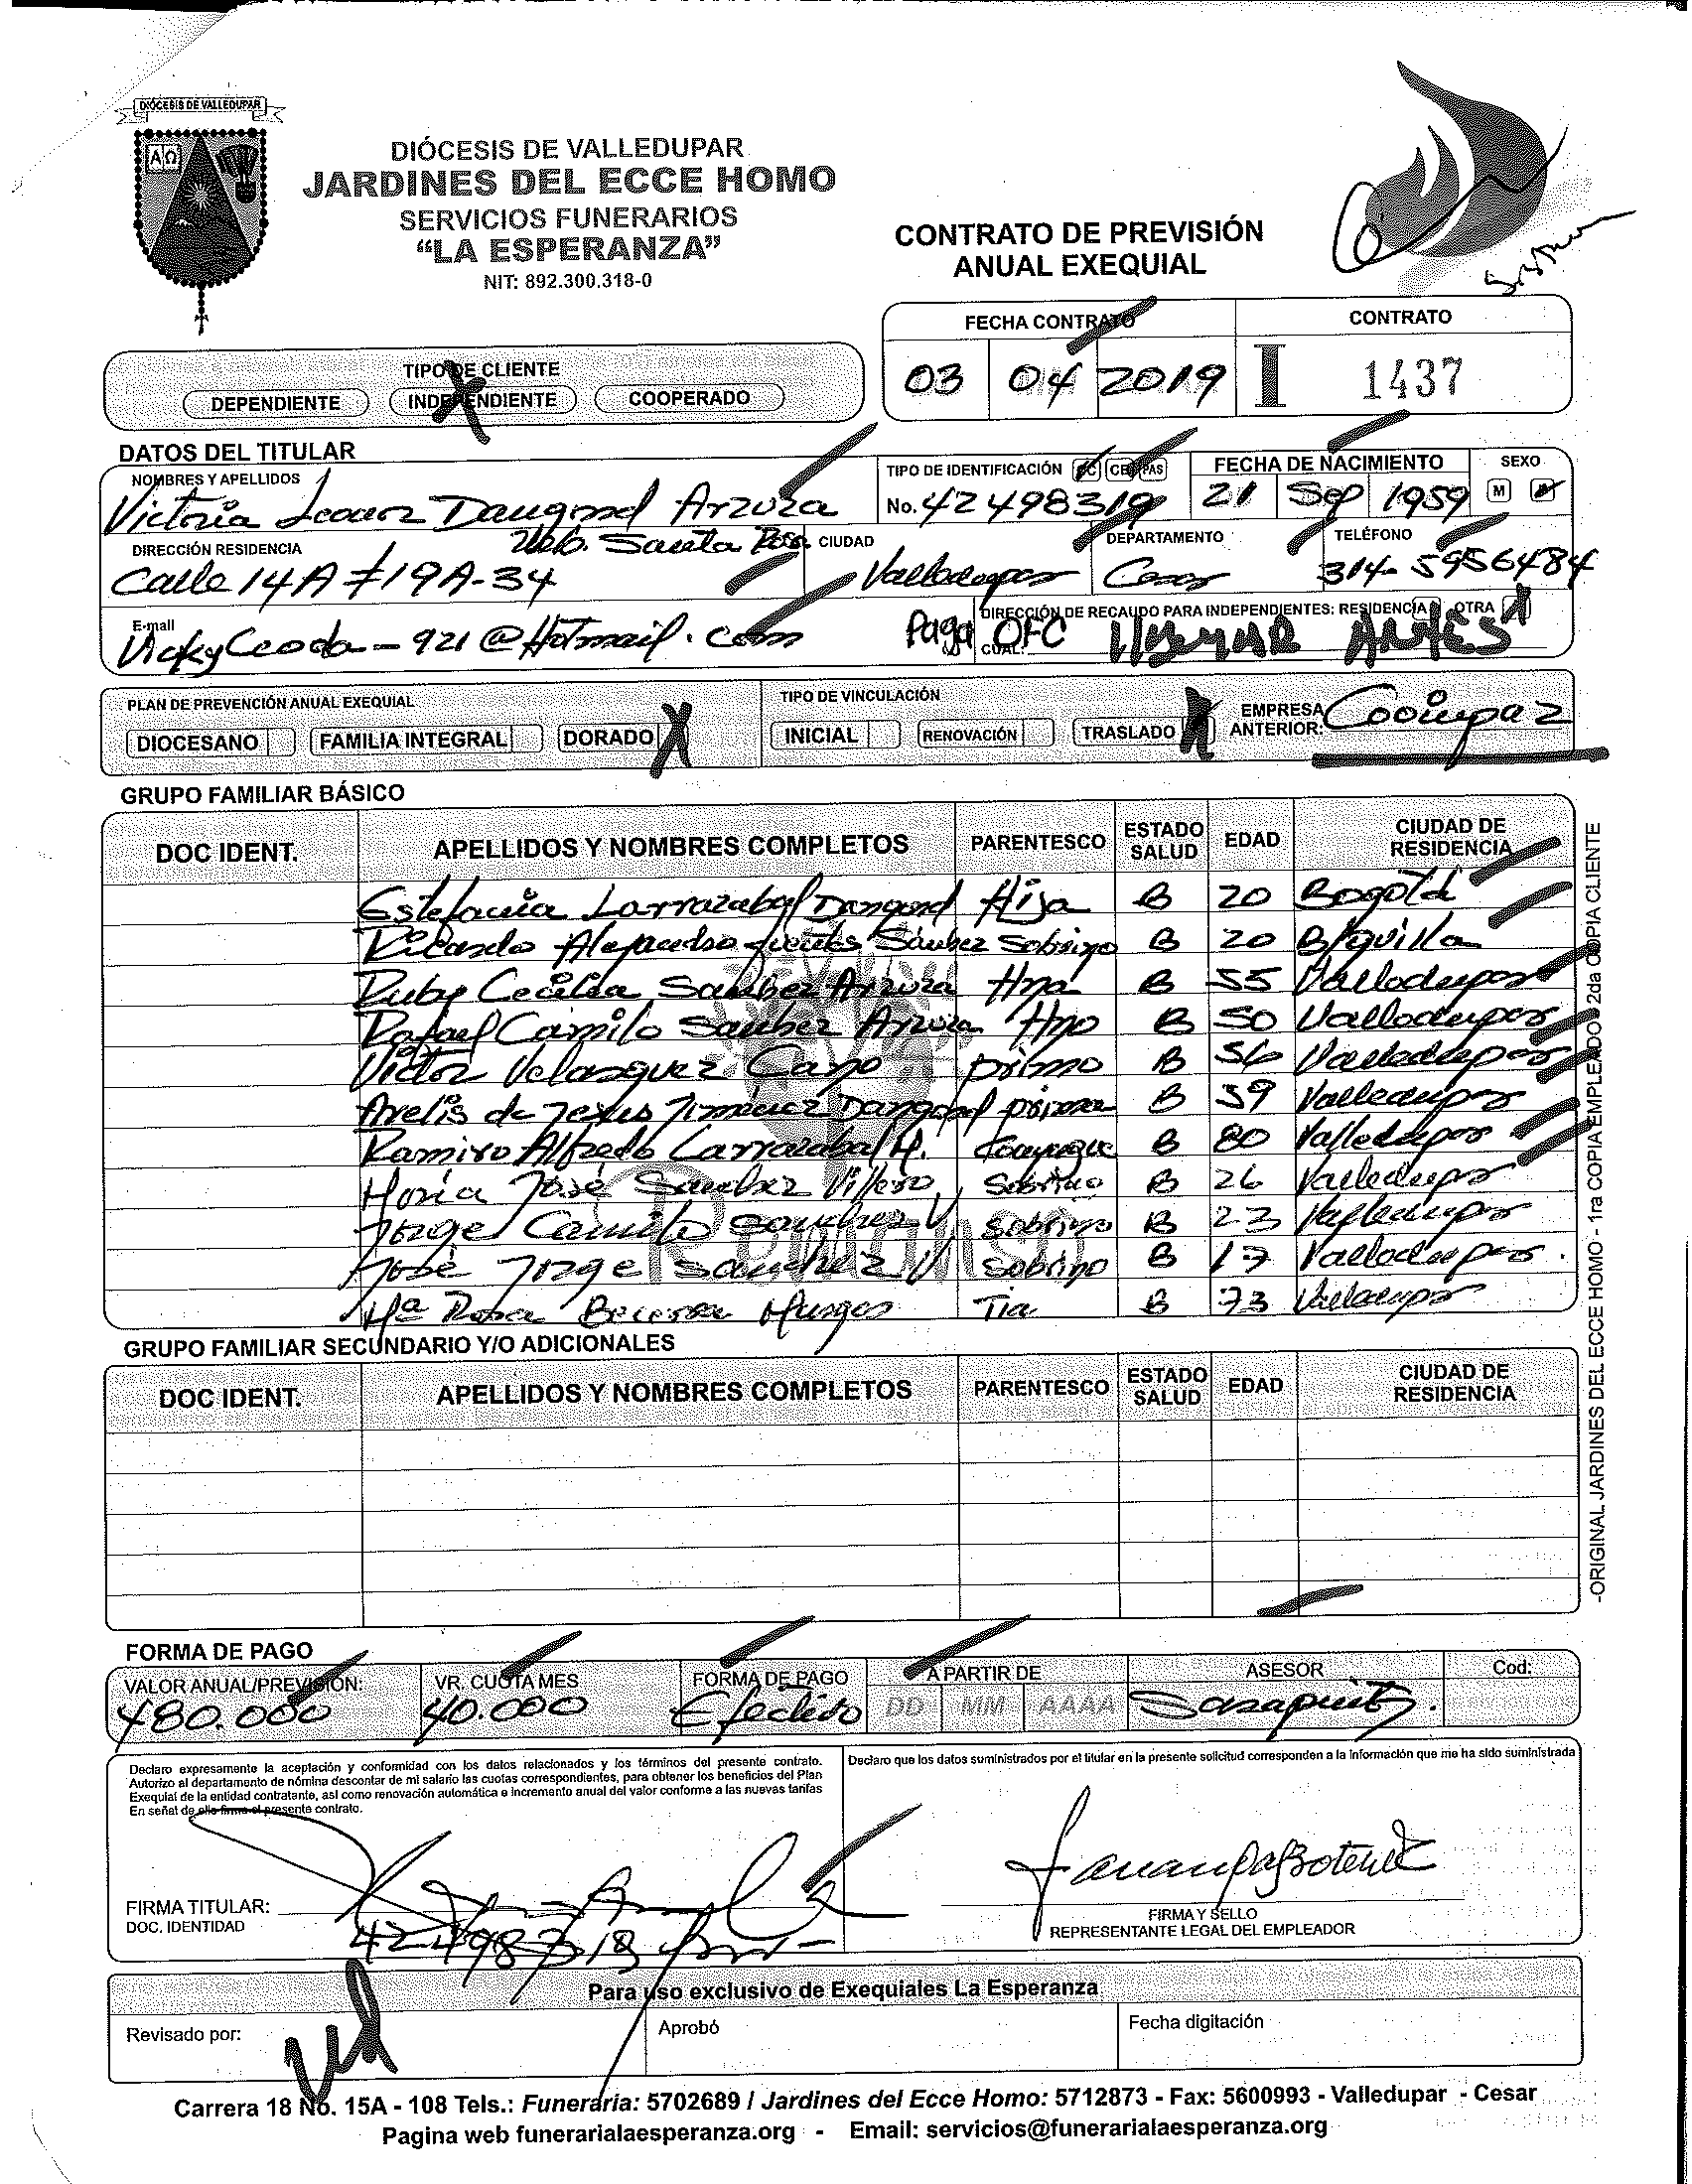 DIÓCESIS DE VALLEDUPAR
ΑΩ
DIÓCESIS DE VALLEDUPAR
JARDINES DEL ECCE HOMO
SERVICIOS FUNERARIOS
“LA ESPERANZA”
NIT: 892.300.318-0
CONTRATO DE PREVISIÓN
ANUAL EXEQUIAL
FECHA CONTRATO CONTRATO
03 04 2019 I 1437
TIPO DE CLIENTE
DEPENDIENTE INDEPENDIENTE X COOPERADO
DATOS DEL TITULAR
NOMBRES Y APELLIDOS TIPO DE IDENTIFICACIÓN CC CE PAS FECHA DE NACIMIENTO SEXO
Victoria Leonor Dangond Arzuza No. 42498319 21 Sep 1959 M
DIRECCIÓN RESIDENCIA Urb. Santa Rosa CIUDAD DEPARTAMENTO TELÉFONO
Calle 14A #19A-34 Valledupar Cesar 314-5956484
E-mail DIRECCIÓN DE RECAUDO PARA INDEPENDIENTES: RESIDENCIA OTRA X
@Hotmail.com Paga OFC CUAL:
PLAN DE PREVENCIÓN ANUAL EXEQUIAL TIPO DE VINCULACIÓN
DIOCESANO FAMILIA INTEGRAL DORADO X INICIAL RENOVACIÓN TRASLADO X EMPRESA ANTERIOR: Cooinpaz
GRUPO FAMILIAR BÁSICO
DOC IDENT. APELLIDOS Y NOMBRES COMPLETOS PARENTESCO ESTADO SALUD EDAD CIUDAD DE RESIDENCIA
Estefania Larrazabal Dangond Hija B 20 Bogotá
Ricardo Alejandro Fuentes Sánchez Sobrino B 20 B/quilla
Ruby Cecilia Sanchez Arzuza Hna B 55 Valledupar
Rafael Camilo Sanchez Arzuza Hno B 50 Valledupar
Victor Velasquez Cayo primo B 56 Valledupar
Arelis de Jesus Jimenez Dangond prima B 59 Valledupar
Ramiro Alfredo Larrazabal H. Conyugue B 80 Valledupar
Maria José Sanchez Villero Sobrino B 26 Valledupar
Jorge Camilo Sanchez V Sobrino B 23 Valledupar
José Jorge Sanchez V Sobrino B 17 Valledupar.
Mª Rosa Becerra Tia B 73 Valledupar
Remanso
GRUPO FAMILIAR SECUNDARIO Y/O ADICIONALES
DOC IDENT. APELLIDOS Y NOMBRES COMPLETOS PARENTESCO ESTADO SALUD EDAD CIUDAD DE RESIDENCIA
-ORIGINAL JARDINES DEL ECCE HOMO - 1ra COPIA EMPLEADO 2da COPIA CLIENTE
FORMA DE PAGO
VALOR ANUAL/PREVISIÓN: VR. CUOTA MES FORMA DE PAGO A PARTIR DE ASESOR Cod:
480.000 40.000 Efectivo DD MM AAAA
Declaro expresamente la aceptación y conformidad con los datos relacionados y los términos del presente contrato.
Autorizo al departamento de nómina descontar de mi salario las cuotas correspondientes, para obtener los beneficios del Plan
Exequial de la entidad contratante, así como renovación automática e incremento anual del valor conforme a las nuevas tarifas
En señal de ello firmo el presente contrato.
Declaro que los datos suministrados por el titular en la presente solicitud corresponden a la información que me ha sido suministrada
FIRMA TITULAR:
DOC. IDENTIDAD 42498319
FIRMA Y SELLO
REPRESENTANTE LEGAL DEL EMPLEADOR
Para uso exclusivo de Exequiales La Esperanza
Revisado por: Aprobó Fecha digitación
Carrera 18 No. 15A - 108 Tels.: Funeraria: 5702689 / Jardines del Ecce Homo: 5712873 - Fax: 5600993 - Valledupar - Cesar
Pagina web funerarialaesperanza.org - Email: servicios@funerarialaesperanza.org